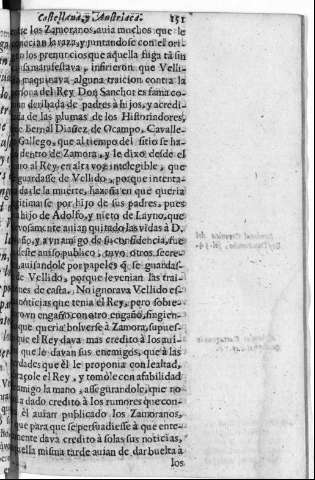 Castellana, y Austriaca. 151
te los Zamoranos, auia muchos que le
nocian la raza, y juntandose con el ori-
los prenuncios que aquella fuga tã sin
manifestava, infirieron que Velli-
maquinava alguna traicion contra la
sona del Rey Don Sancho: es fama co-
deribada de padres à hijos, y acredi-
da de las plumas de los Historiadores,
Bernal Diañez de Ocampo, Cavalle-
Gallego, que al tiempo del sitio se ha-
dentro de Zamora, y le dixo desde el
al Rey en alta voz intelegible, que
guardasse de Vellido, porque intenta-
darle la muerte, hazaña en que queria
por hijo de sus padres, pues
hijo de Adolfo, y nieto de Layno, que
auian quitado las vidas à D.
y a vn amigo de su confidencia, fue
este auiso publico, tuvo otros secre-
auisandole por papeles q̃ se guardas-
de Vellido, porque le venian las trai-
nes de casta. No ignorava Vellido es-
noticias que tenia el Rey, pero sobre-
vn engaño con otro engaño, fingien-
que queria bolverse à Zamora, supues-
que el Rey dava mas credito à los aui-
que le davan sus enemigos, que à las
dades que èl le proponia con lealtad,
el Rey, y tomòle con afabilidad
amigo la mano, assegurandole, que no
a dado credito à los rumores que con-
èl auian publicado los Zamoranos,
que para que se persuadiesse à que ente-
mente dava credito à solas sus noticias,
uella misma tarde auian de dar buelta à
los